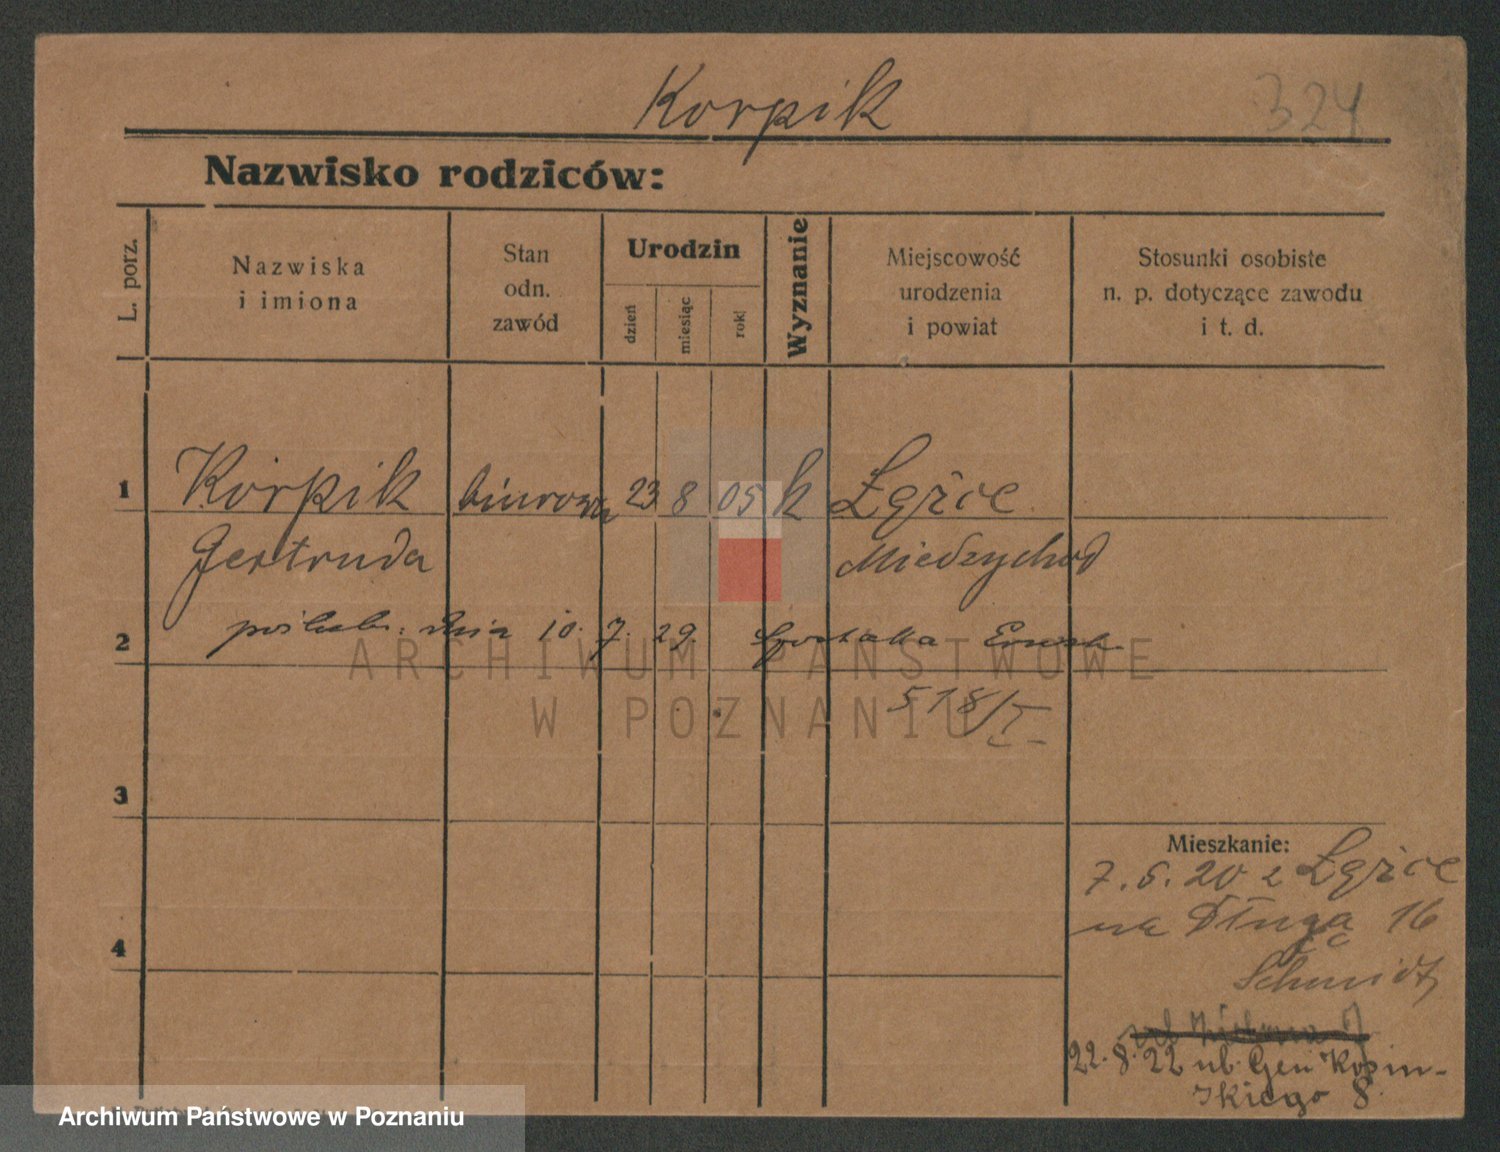 Korpik
324
Nazwisko rodziców:
L. porz.
Nazwiska
i imiona
Stan
odn.
zawód
Urodzin
dzień
miesiąc
rok
Wyznanie
Miejscowość
urodzenia
i powiat
Stosunki osobiste
n. p. dotyczące zawodu
i t. d.
1
Korpik biurowa 23 8 05 k Łężce
Gertruda Miedzychod
2
dnia 10. 7. 29.
518/I
3
Mieszkanie:
7.6.20 z Łężce
na Długą 16
Schmidt
4
22.8.22 ul. Gen Kosin-
skiego 8.
ARCHIWUM PAŃSTWOWE
W POZNANIU
Archiwum Państwowe w Poznaniu